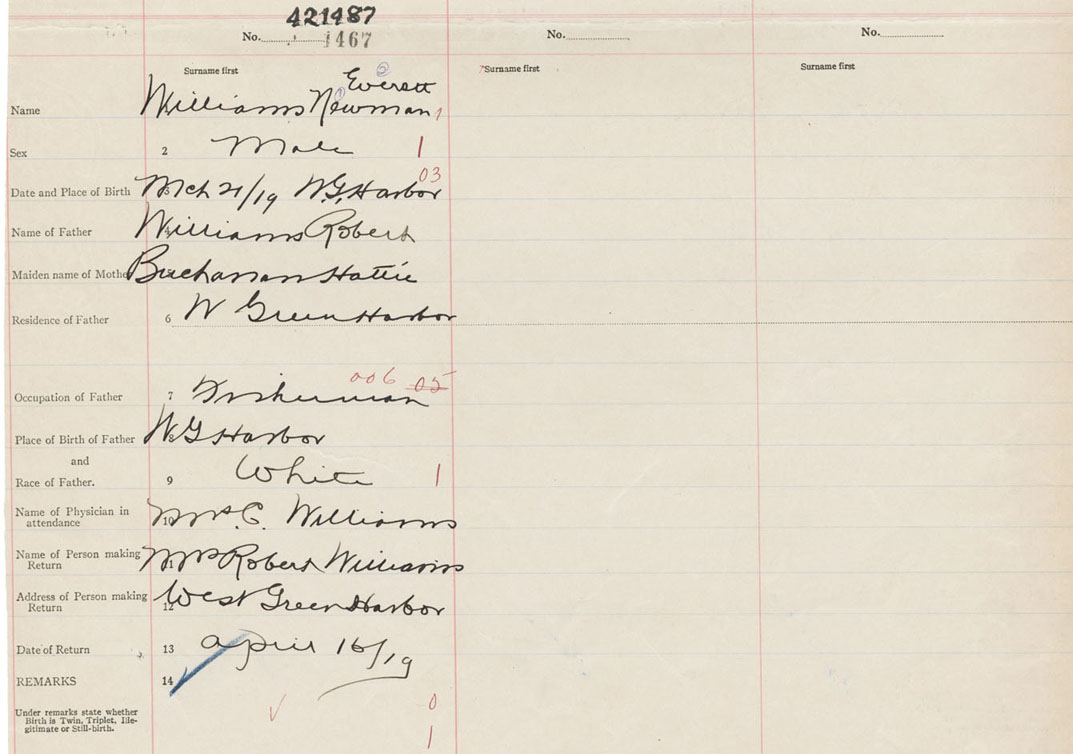 421487
No. 1467
No.
No.
Surname first
Surname first
Surname first
② Everett
Name Williams ① Newman 1
Sex 2 Male 1
03
Date and Place of Birth 3 Mch 21/19 W.G. Harbor
Name of Father 4 Williams Robert
Maiden name of Mother 5 Buchanan Hattie
Residence of Father 6 W Green Harbor
006 05
Occupation of Father 7 Fisherman
Place of Birth of Father 8 W G Harbor
and
Race of Father. 9 White 1
Name of Physician in
attendance 10 Mrs. C. Williams
Name of Person making
Return 11 Mrs Robert Williams
Address of Person making
Return 12 West Green Harbor
Date of Return 13 April 16/19
REMARKS 14
Under remarks state whether
Birth is Twin, Triplet, Ille-
gitimate or Still-birth.
0
1